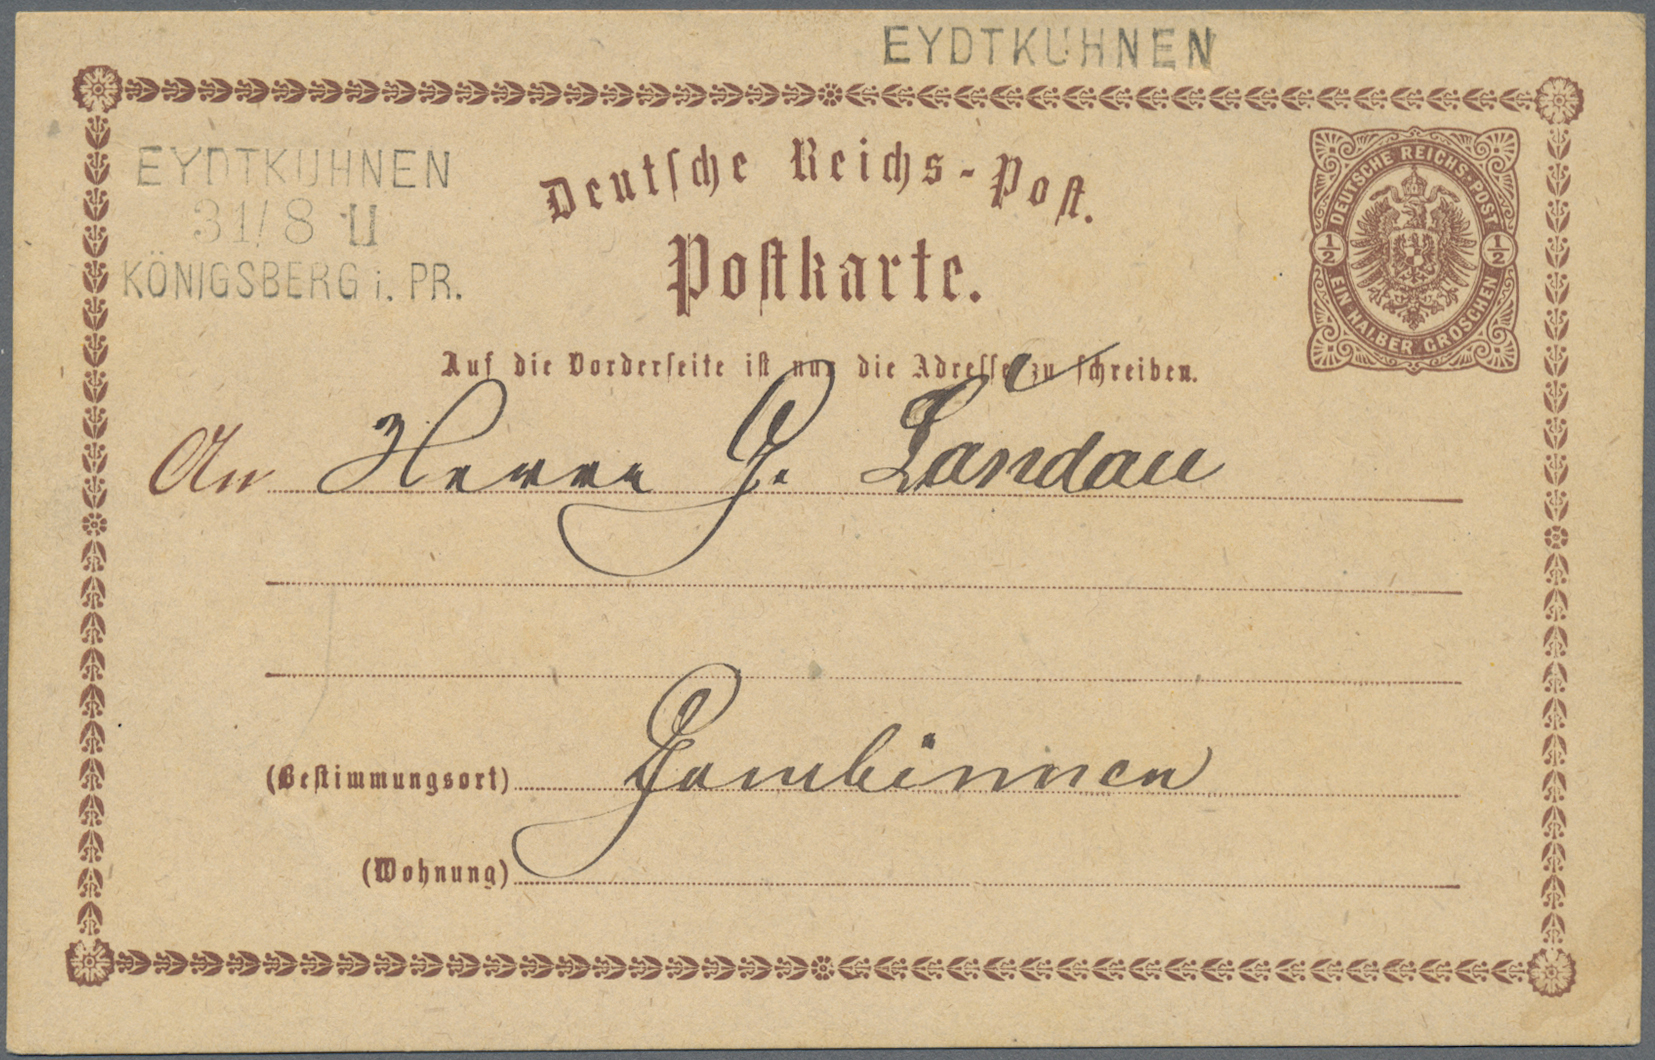 EYDTKUHNEN
EYDTKUHNEN
31/8 II
KÖNIGSBERG i. PR.
Deutsche Reichs-Post.
Postkarte.
DEUTSCHE REICHS-POST
1/2 1/2
EIN HALBER GROSCHEN
Auf die Vorderseite ist nur die Adresse zu schreiben.
An Herrn G. Landau
(Bestimmungsort) Gumbinnen
(Wohnung)